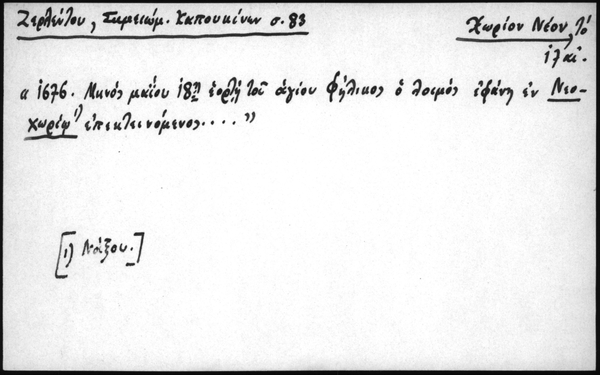 Ζερλέντου, Σημειώμ. Καπουκίνων σ. 83
Χωρίον Νέον, τό
17 αἰ.
« 1676. Μηνός μαΐου 18ῃ ἑορτῇ τοῦ ἁγίου Φήλικος ὁ λοιμός ἐφάνη ἐν Νεο-
χωρίῳ 1) ἐπεκτεινόμενος.... »
[1) Νάξου.]